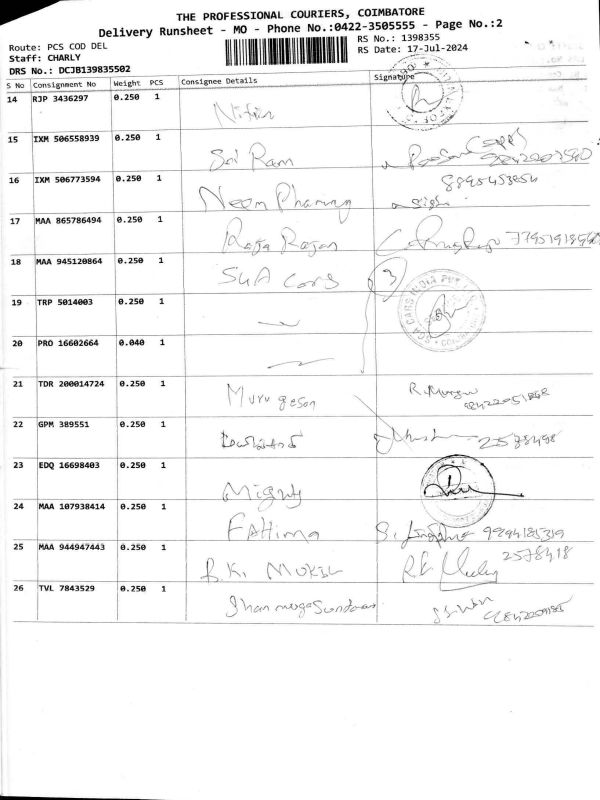 THE PROFESSIONAL COURIERS, COIMBATORE
Delivery Runsheet - MO - Phone No.:0422-3505555 - Page No.:2
Route: PCS COD DEL RS No.: 1398355
Staff: CHARLY RS Date: 17-Jul-2024
DRS No.: DCJB139835502
S No Consignment No Weight PCS Consignee Details Signature
14 RJP 3436297 0.250 1 Nithin
15 IXM 506558939 0.250 1 Sai Ram
16 IXM 506773594 0.250 1 Neem Pharmay
17 MAA 865786494 0.250 1 Raja Rajan
18 MAA 945120864 0.250 1 SGA Cars 3
SGA CARS INDIA PVT
19 TRP 5014003 0.250 1
20 PRO 16602664 0.040 1
21 TDR 200014724 0.250 1 Murugesan
22 GPM 389551 0.250 1 2578498
23 EDQ 16698403 0.250 1 Mighty
24 MAA 107938414 0.250 1 FAthima
25 MAA 944947443 0.250 1 2578418
26 TVL 7843529 0.250 1 Shanmuga Sundaram